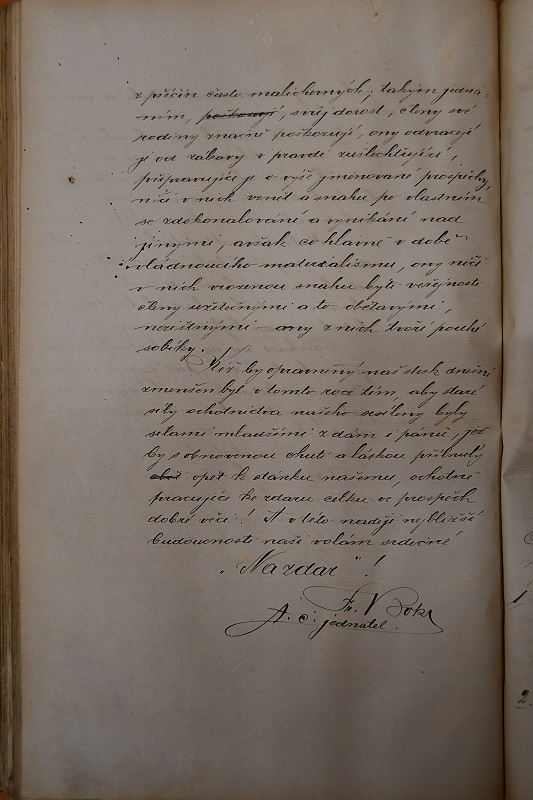 z příčin často malicherných; takým jedná-
ním, poškozují, svůj dorost, členy své
rodiny značně poškozují, ony odvracejí
je od zábavy v pravdě zušlechťující,
připravujíce je o výše jmenované prospěchy,
ničí v nich vznět a snahu po vlastním
se zdokonalování a vynikání nad
jinými, avšak co hlavne v době
vládnoucího materialismu, ony ničí
v nich vrozenou snahu býti veřejnosti
členy užitečnými a to obětavými,
nezištnými any z nich tvoří pouhé
sobíky.
Kéž by oprávněný náš stesk dnešní
zmenšen byl v tomto roce tím, aby staré
síly ochotnictva našeho sesíleny byly
silami mladšími z dam i pánů, jež
by s obnovenou chutí a láskou přilnuly
opět k stánku našemu, ochotně
pracujíce ke zdaru celku ve prospěch
dobré věci! A v této naději nejbližší
budoucnosti naší volám srdečné
"Nazdar"!
Fr. V
t. č. jednatel.
2